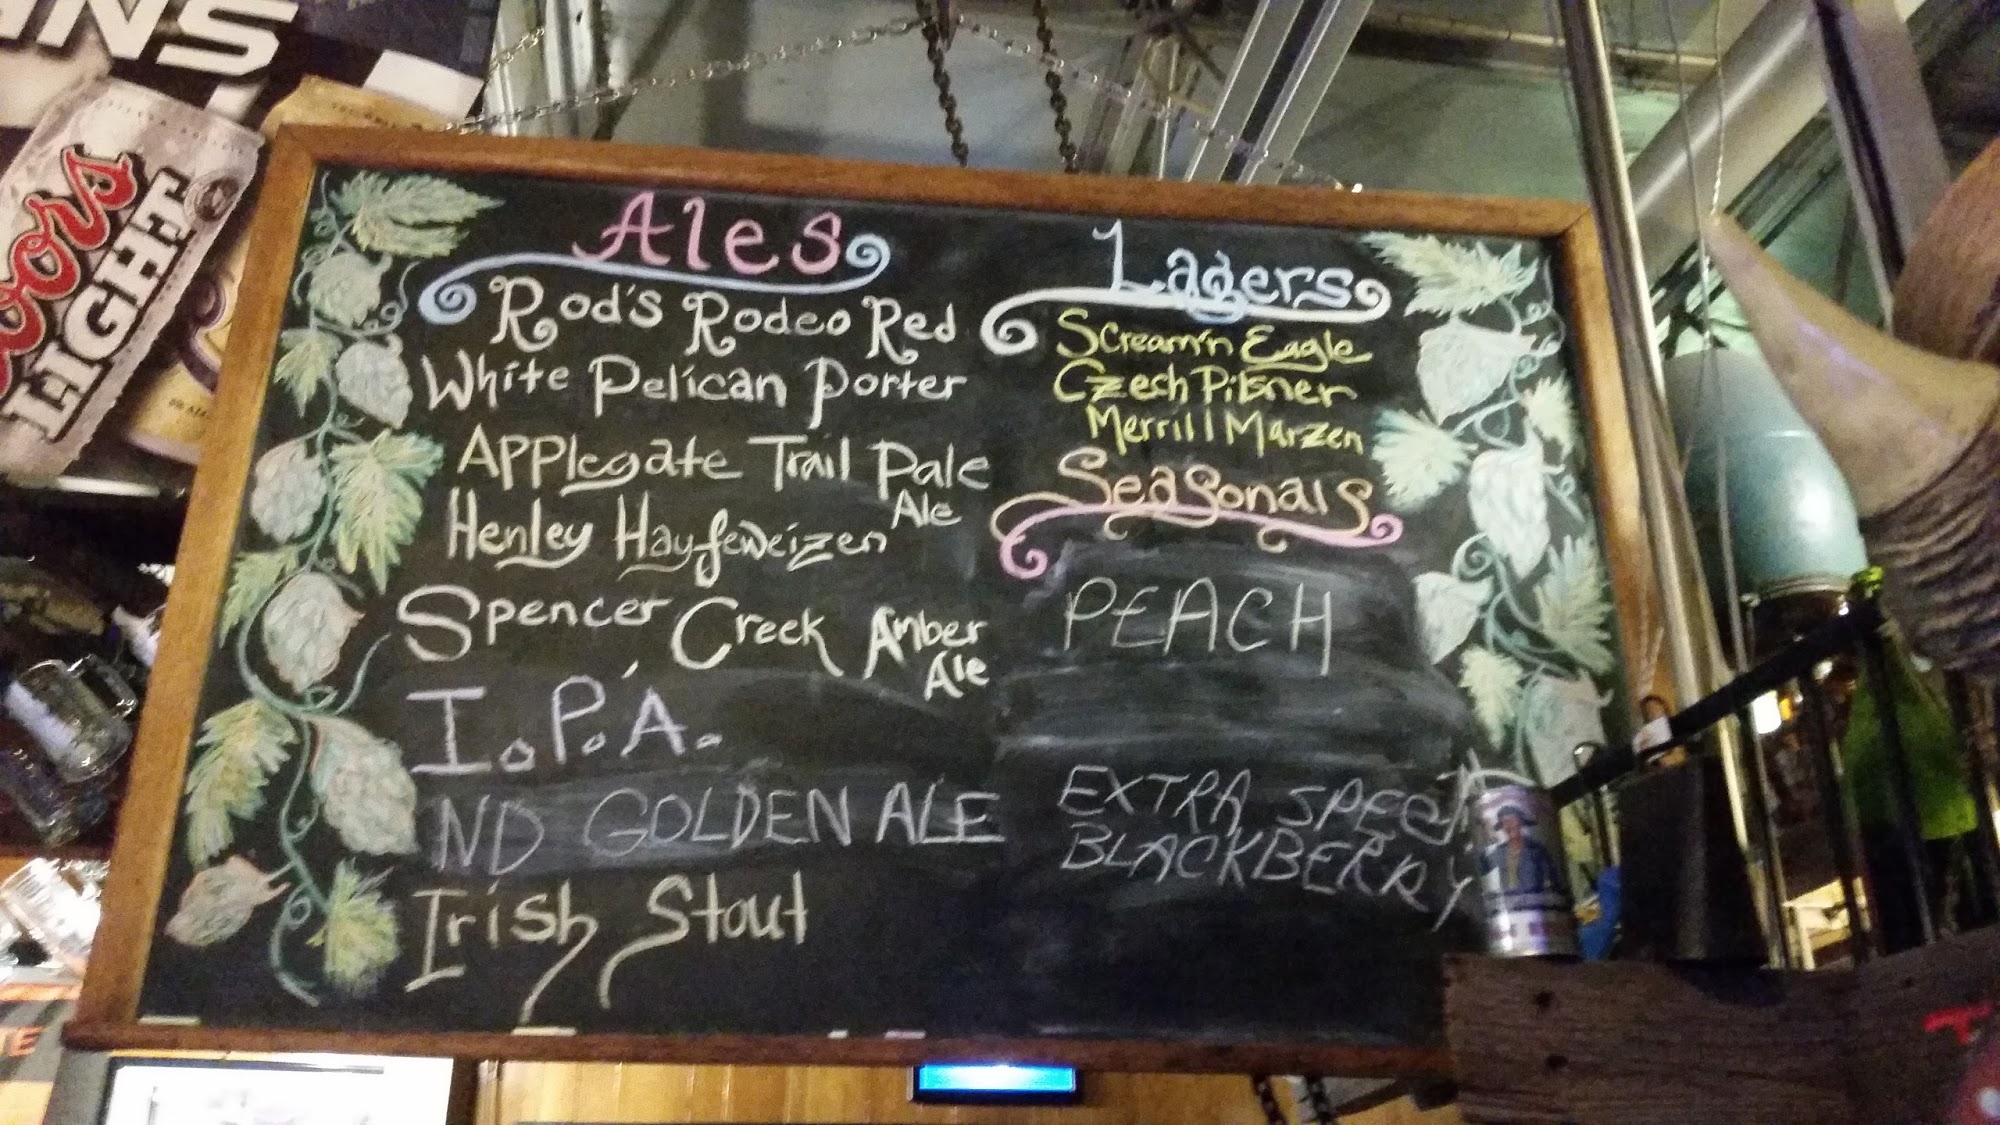 NS
Coors
LIGHT
Ales
Rod's Rodeo Red
White Pelican Porter
Applegate Trail Pale
Ale
Henley Hayfeweizen
Spencer Creek Amber
Ale
I.P.A.
ND GOLDEN ALE
Irish Stout
Lagers
Scream'n Eagle
Czech Pilsner
Merrill Marzen
Seasonals
PEACH
EXTRA
BLACKBERRY
TE